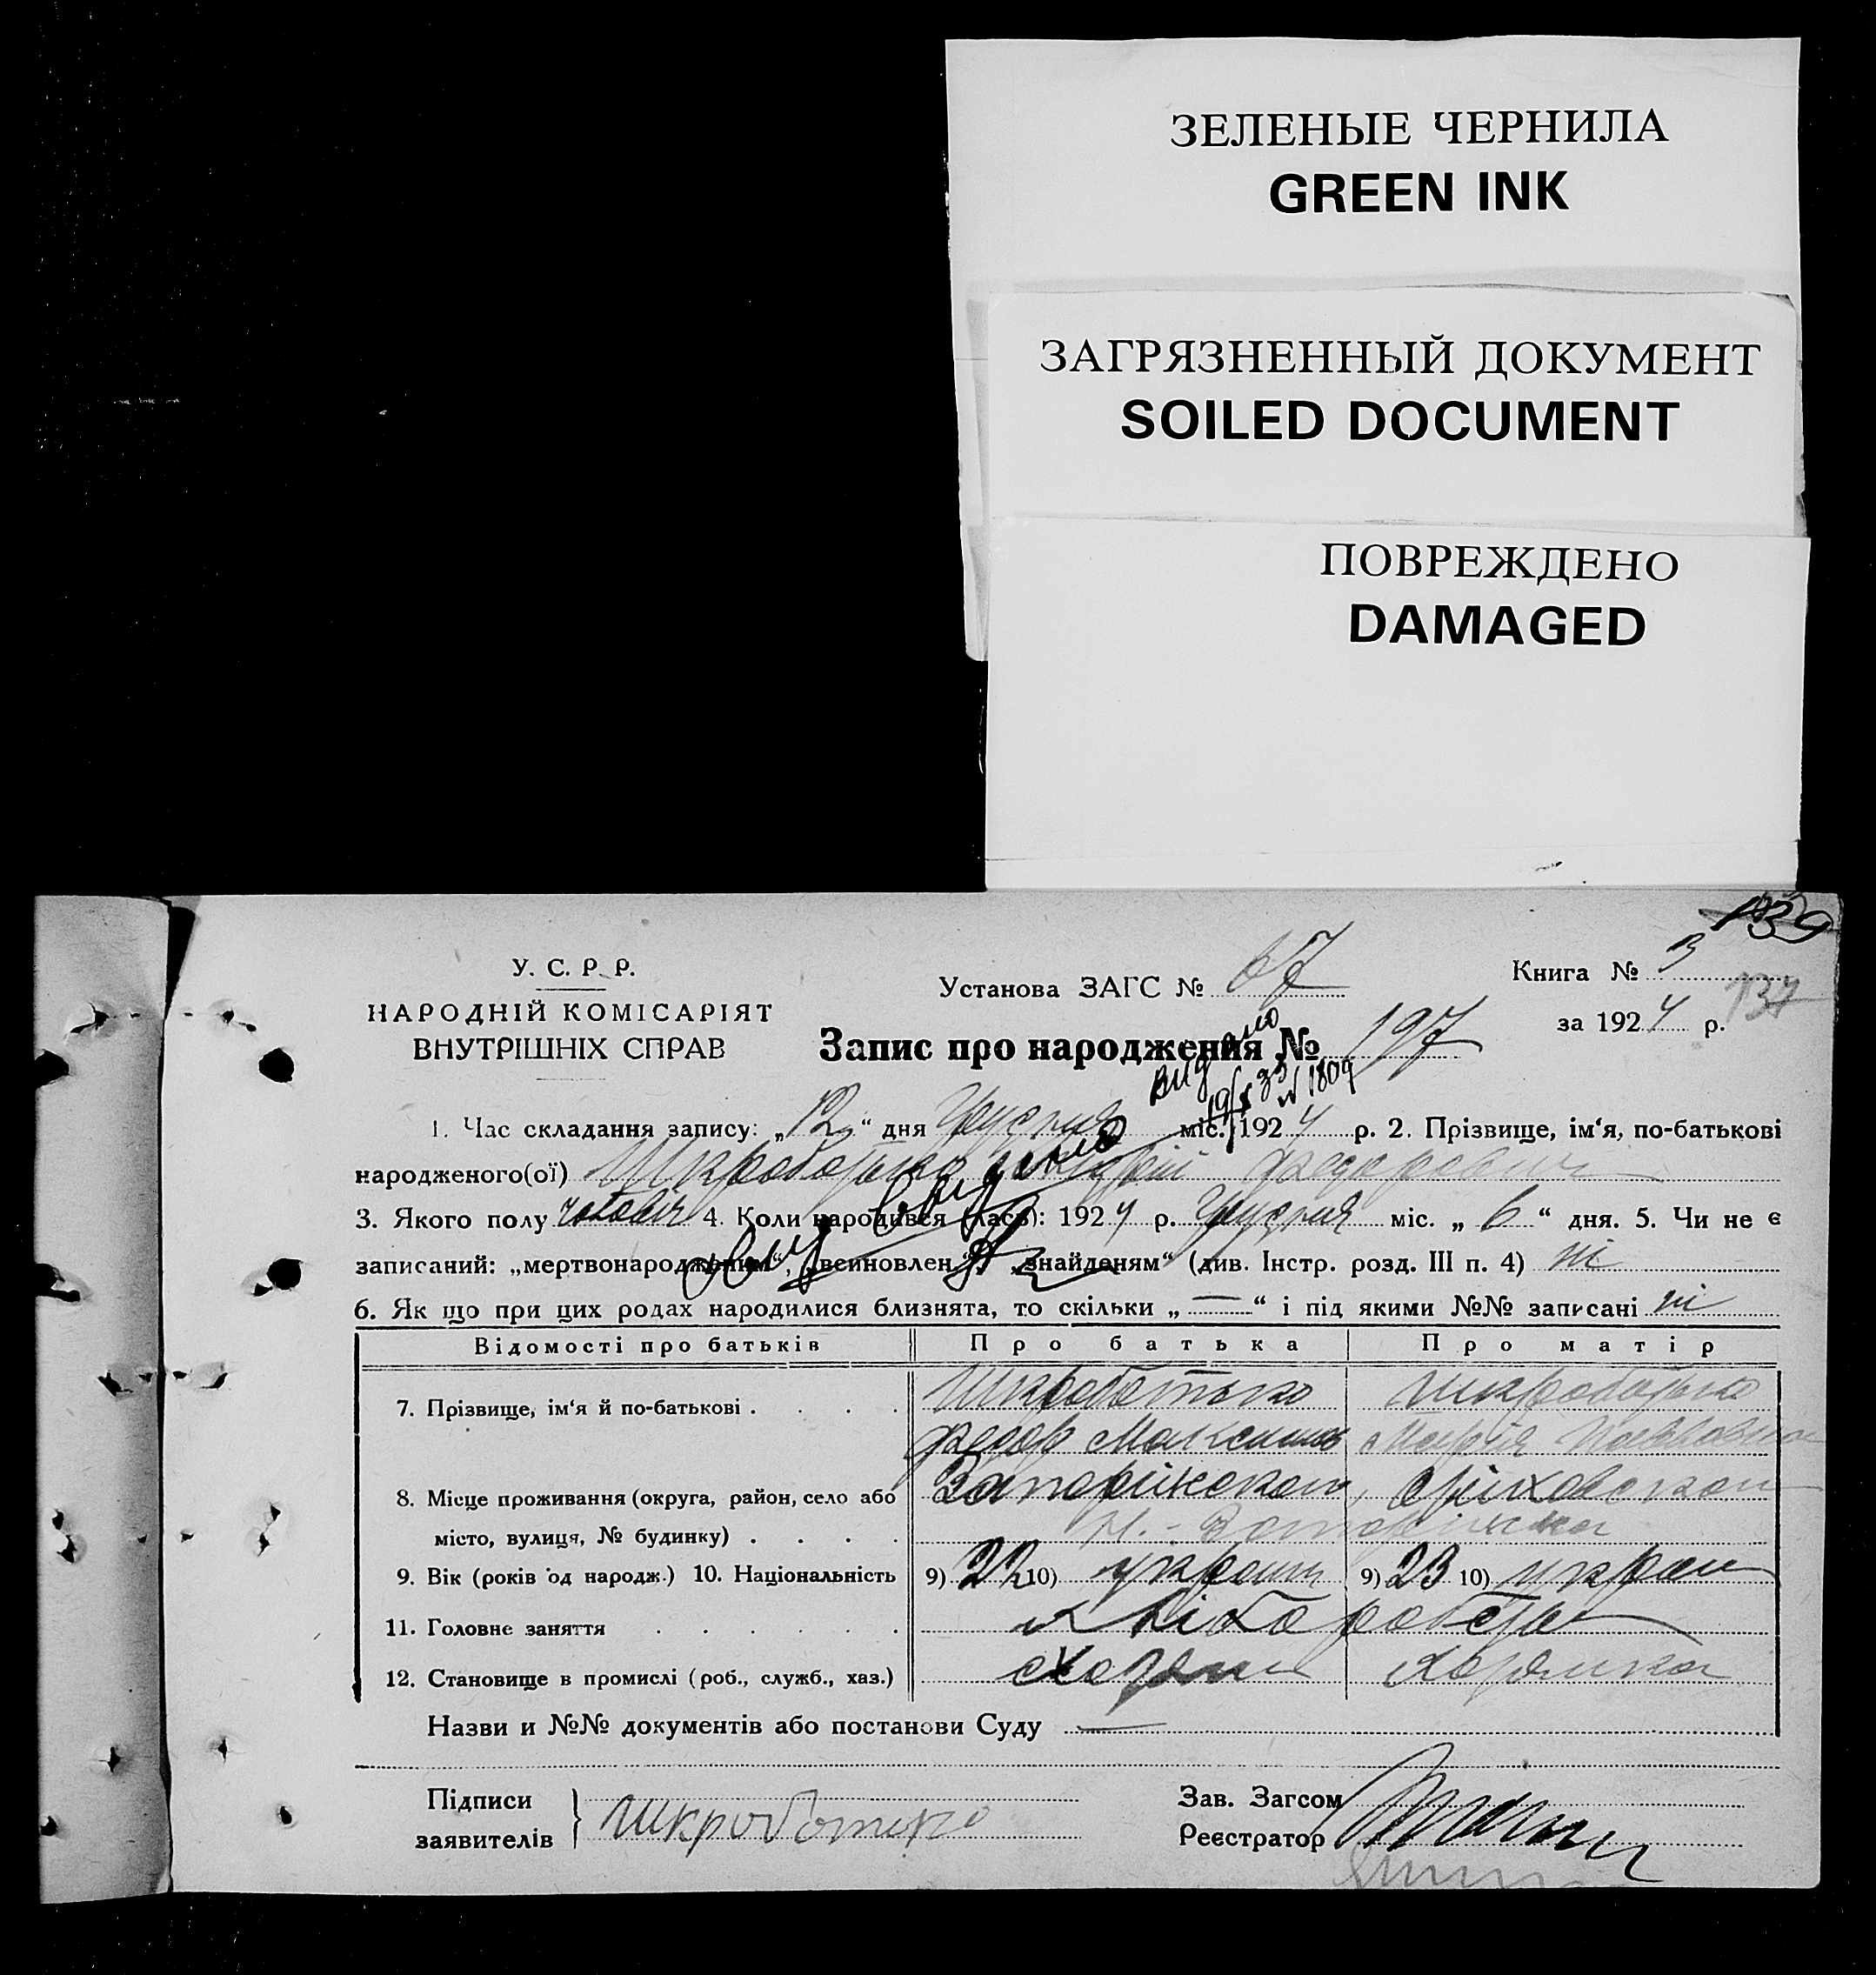 ЗЕЛЕНЫЕ ЧЕРНИЛА
GREEN INK
ЗАГРЯЗНЕННЫЙ ДОКУМЕНТ
SOILED DOCUMENT
ПОВРЕЖДЕНО
DAMAGED
139
У. С. Р. Р.
НАРОДНІЙ КОМІСАРІЯТ
ВНУТРІШНІХ СПРАВ
Установа ЗАГС № 67
Книга № 3
137
за 1924 р.
Запис про народження № 197
видано
№ 1809
1. Час складання запису: „12“ дня міс. 1924 р. 2. Прізвище, ім‘я, по-батькові
народженого(ої) Шкроботько Федорович
3. Якого полу чоловіч 4. Коли народився (лась): 1924 р. міс. „6“ дня. 5. Чи не є
записаний: „мертвонародженим“, „всиновлен“, „знайденям“ (див. Інстр. розд. III п. 4) ні
6. Як що при цих родах народилися близнята, то скільки „—“ і під якими №№ записані ні
Відомості про батьків Про батька Про матір
7. Прізвище, ім‘я й по-батькові . . . . Шкроботько Шкроботько
Федор Максимов Марія Павловна
8. Місце проживання (округа, район, село або Запоріжская, Оріховская
місто, вулиця, № будинку) . . . .
9. Вік (років од народж.) 10. Національність 9) 22 10) україн 9) 23 10) украін
11. Головне заняття . . . . . . хлібороб
12. Становище в промислі (роб., служб., хаз.) хазяин хазяйка
Назви и №№ документів або постанови Суду —
Підписи
заявителів } Шкроботько
Зав. Загсом
Реєстратор